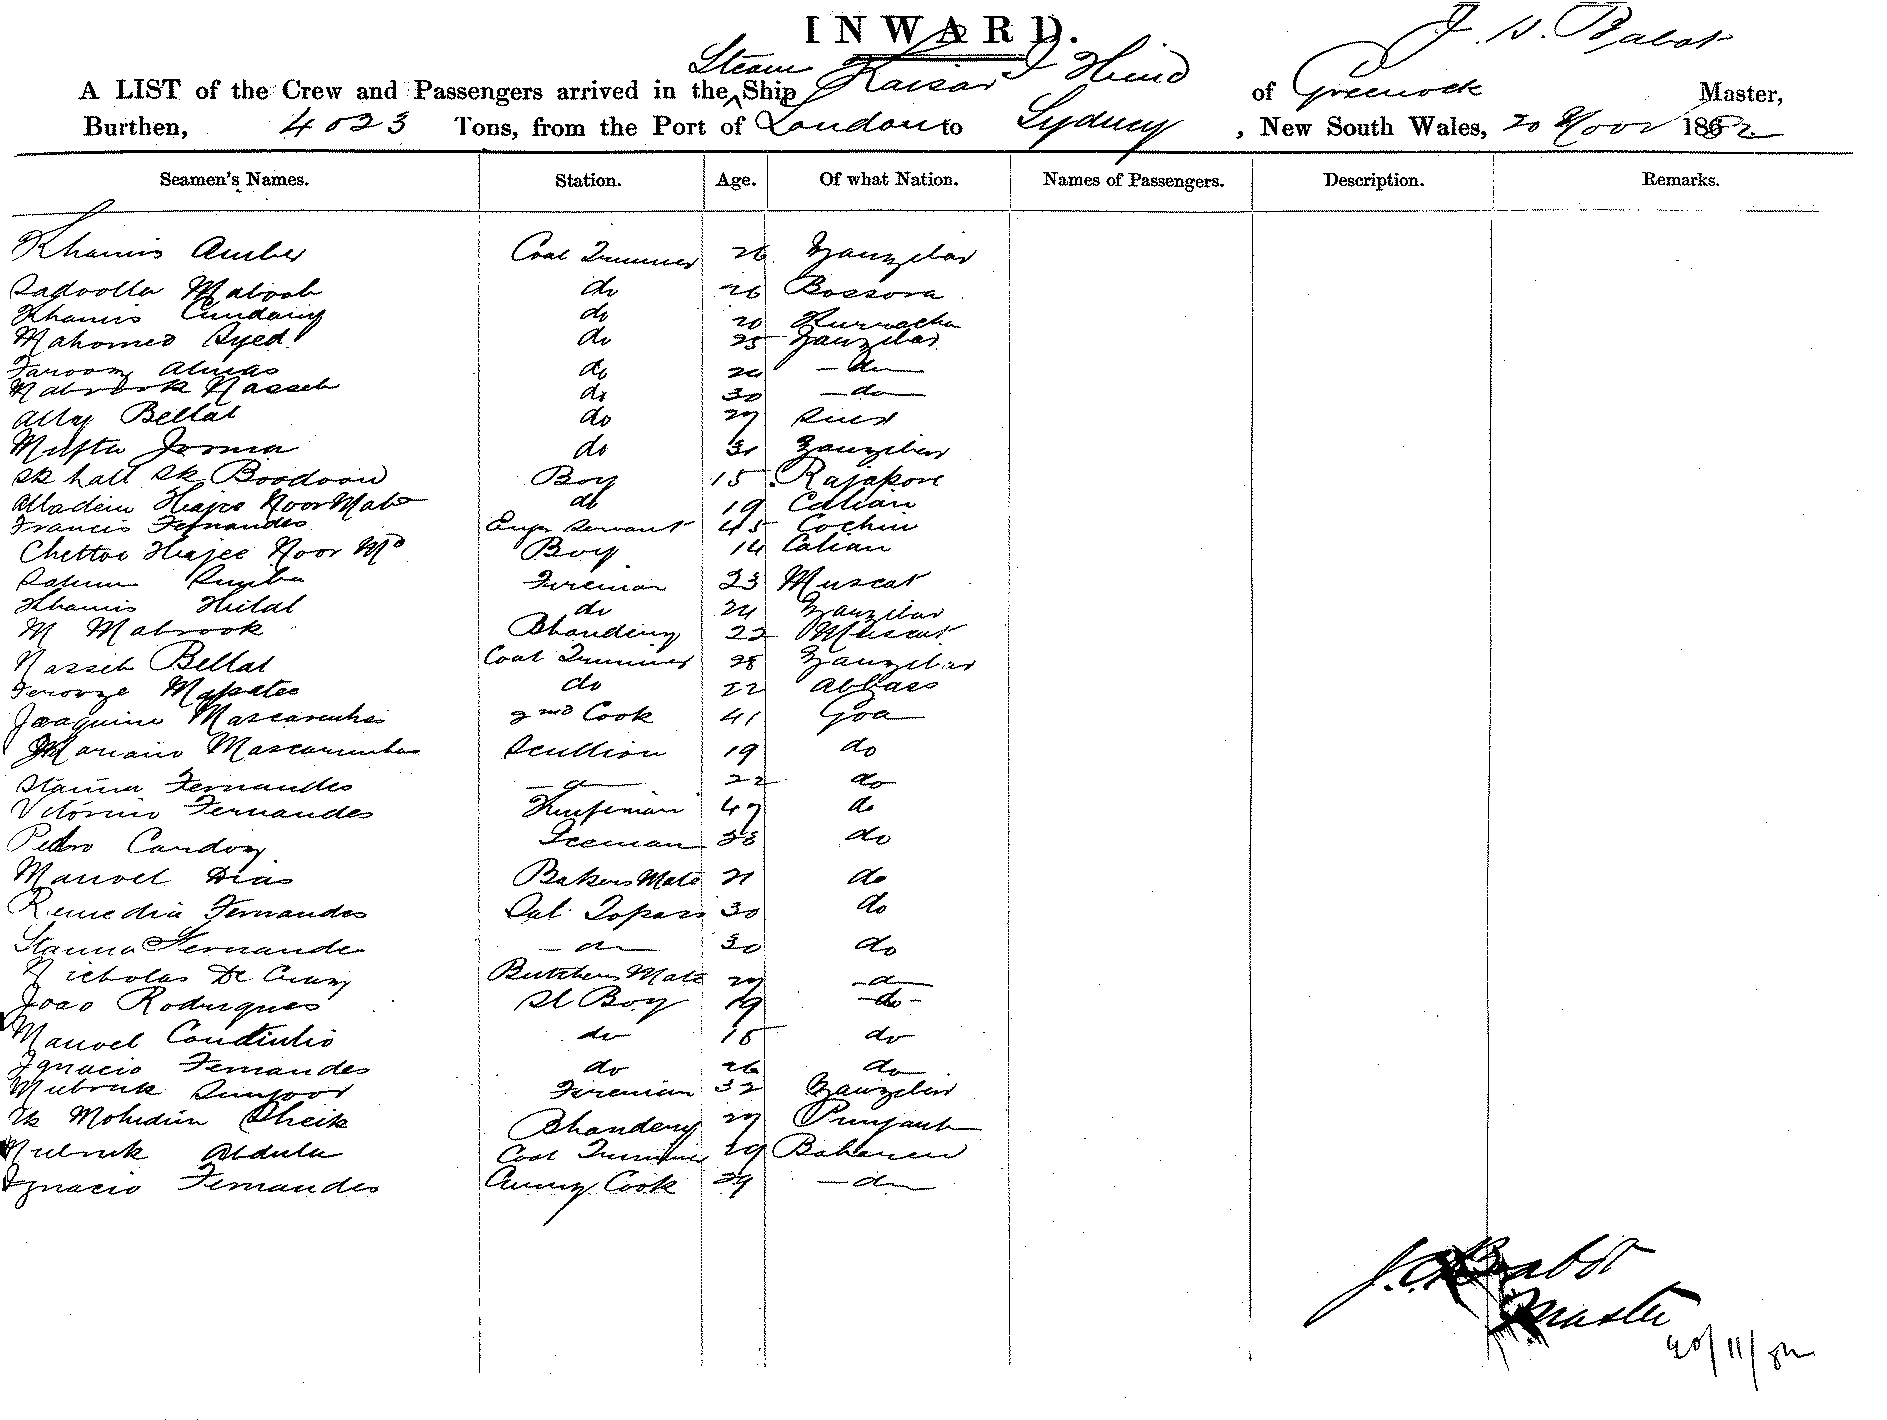 INWARD.
Steam Kaisar I Hind
A LIST of the Crew and Passengers arrived in the Ship of Greenock Master,
Burthen, 4023 Tons, from the Port of London to Sydney, New South Wales, 20 Novr 1882
Seamen's Names. Station. Age. Of what Nation. Names of Passengers. Description. Remarks.
Khamis Amber Coal Trimmer 26 Zanzibar
Sadoolla Maboob do 26 Bossora
Khamis do 20 Kurrachee
Mahomed Syed do 25 Zanzibar
Farooz Almas do do
Mabrook Nasseb do 30 do
Ally Bellal do 27
Mufta Jooma do Zanzibar
Sk Boodoo Boy 15 Rajapore
Hajee Noor Mahd do 19 Calian
Francis Fernandes Engr Servant 45 Cochin
Chettoo Hajee Noor Md Boy 14 Calian
Fireman 23 Muscat
Khamis Hilal do 24 Zanzibar
M Mabrook Bhandery 22 Muscat
Nasseb Bellal Coal Trimmer 28 Zanzibar
Ferooze do 22 Abbass
Joaquim Mascarenhas 2nd Cook 41 Goa
Mariano Mascarenhas Scullion 19 do
Fernandes do 22 do
Vitorino Fernandes 47 do
Pedro Cardoz Iceman 33 do
Manoel Dias Bakers Mate 21 do
Remedia Fernandes Topass 30 do
Fernande do 30 do
Nicholas De Cruz Butchers Mate 27 do
Joao Rodrigues Boy 19 do
Manoel do 15 do
Ignacio Fernandes do 26 do
Mubruk Fireman 32 Zanzibar
Sk Mohidin Sheik Bhandery 27 Punjaub
Mubruk Abdula Coal Trimmer 29
Ignacio Fernandes Cook 29 do
Master
20/11/82